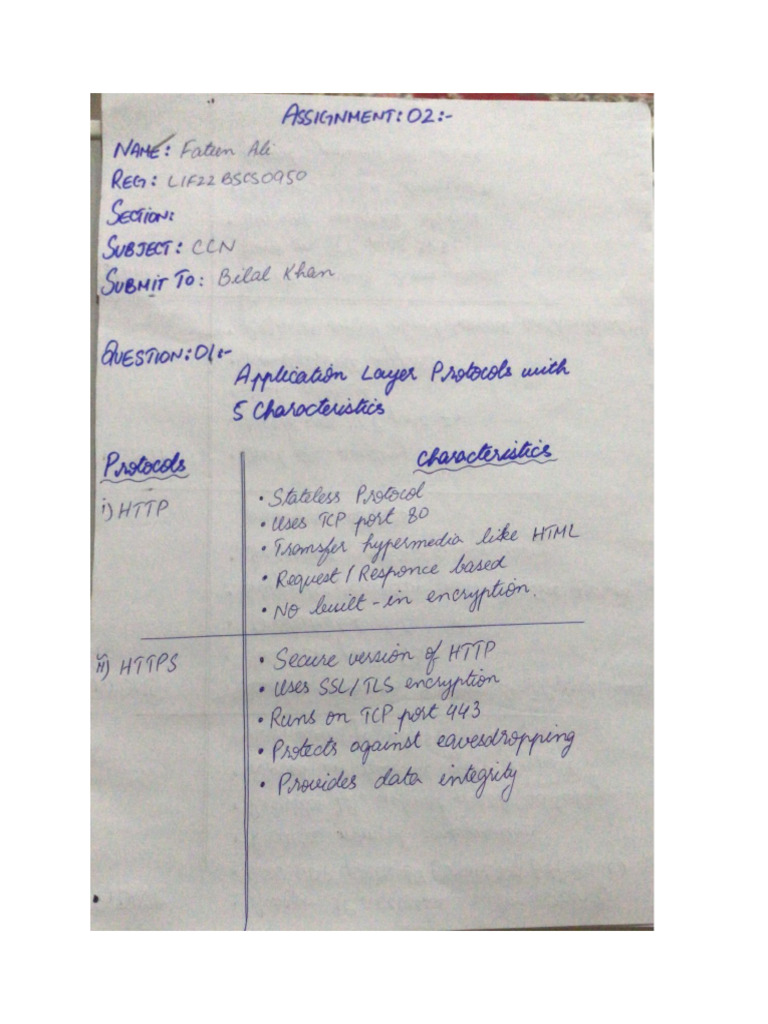 ASSIGNMENT: 02:-
NAME: Fateen Ali
REG: L1F22BSCS0950
SECTION:
SUBJECT: CCN
SUBMIT TO: Bilal Khan
QUESTION: 01:-
Application Layer Protocols with
5 Characteristics
Protocols
Characteristics
i) HTTP
• Stateless Protocol
• Uses TCP port 80
• Transfer hypermedia like HTML
• Request/Responce based
• No built-in encryption.
ii) HTTPS
• Secure version of HTTP
• Uses SSL/TLS encryption
• Runs on TCP port 443
• Protects against eavesdropping
• Provides data integrity